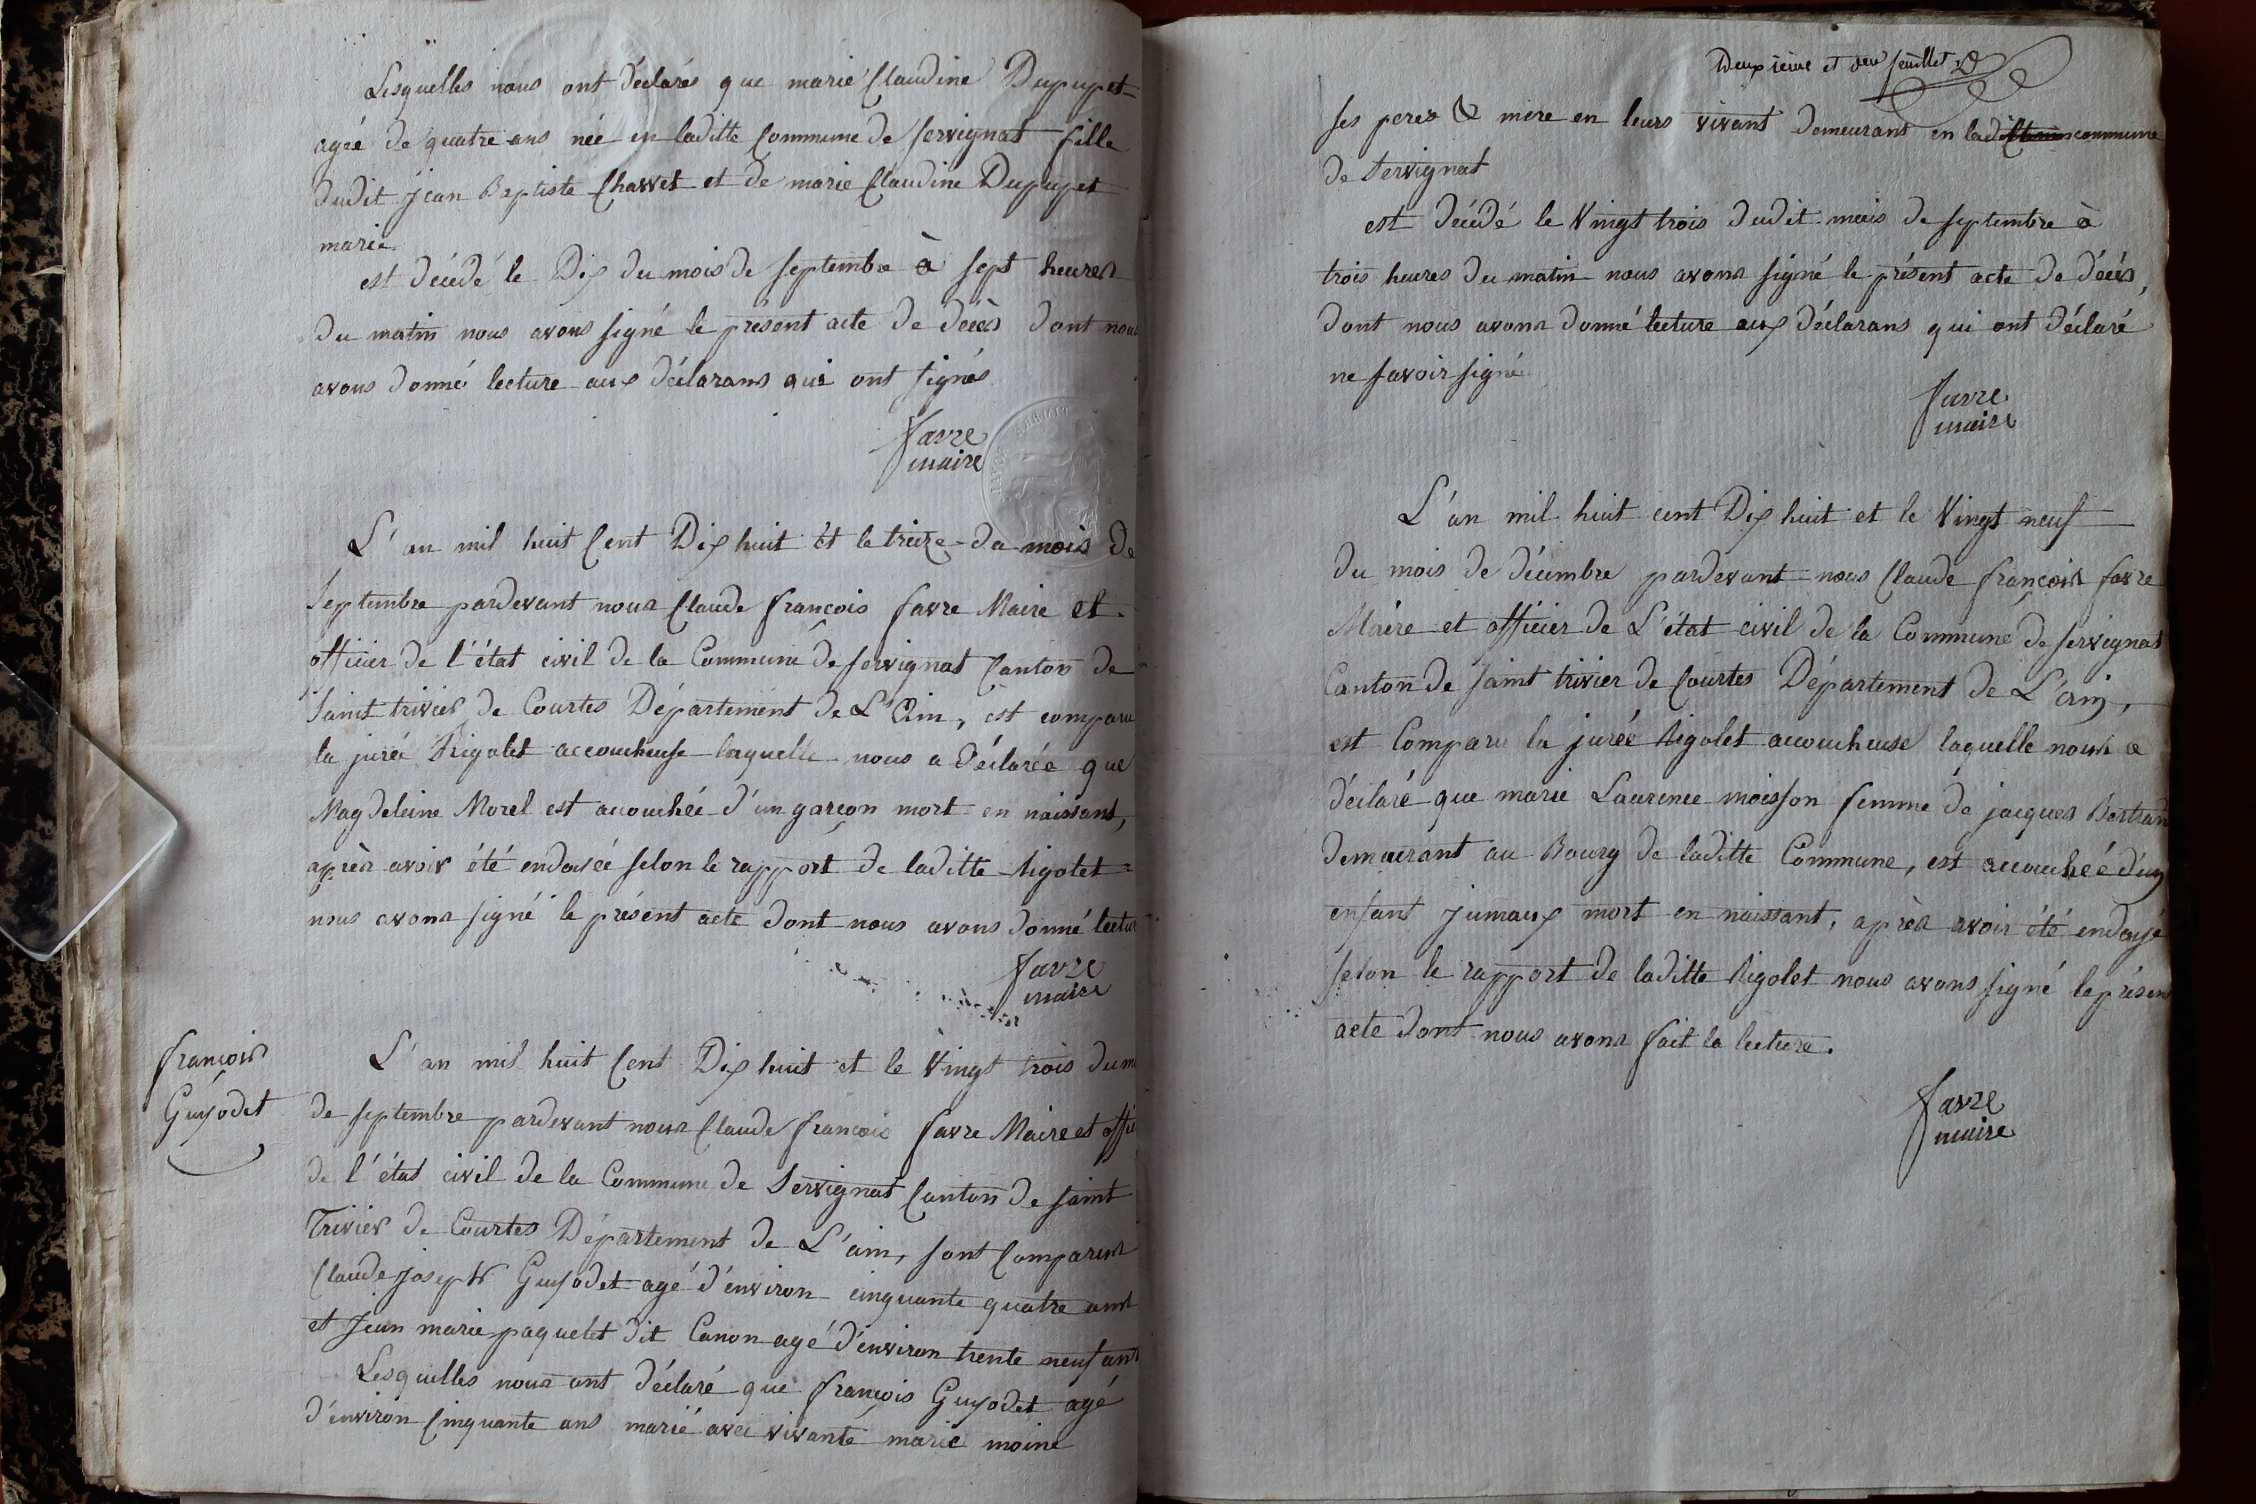 Lesquelles nous ont déclarés que marie Claudine Dupupet
agée de quatre ans née en laditte Commune de servignat fille
dudit jean Baptiste Chavvet et de marie Claudine Dupupet
marié
est décédé le Dix du mois de septembre à sept heures
du matin nous avons signé le présent acte de décès dont nous
avons donné lecture aux déclarans qui ont signés
favre
maire
L'an mil huit Cent Dix huit et le treize du mois de
septembre pardevant nous Claude françois favre Maire et
officier de l'état civil de la Commune de servignat Canton de
saint trivier de Courtes Département de L'Ain, est comparu
la jurée Rigolet accoucheuse laquelle nous a déclarée que
Magdeleine Morel est accouchée d'un garçon mort en naissant,
après avoir été endoyée selon le rapport de laditte Rigolet
nous avons signé le présent acte dont nous avons donné lecture
favre
maire
françois
Guyodet
L'an mil huit Cent Dix huit et le Vingt trois du m
de septembre pardevant nous Claude françois favre Maire et offi
de l'état civil de la Commune de Servignat Canton de saint
Trivier de Courtes Département de L'ain, sont Comparus
Claude joseph Guyodet agé d'environ cinquante quatre ans
et jean marie paquelet dit Canon agé d'environ trente neuf ans
Lesquelles nous ont déclaré que françois Guyodet agé
d'environ Cinquante ans marié avec vivante marie moine
Deuxieme et feuillet
ses peres & mere en leurs vivant demeurant en laditte commune
de Servignat
est décédé le Vingt trois dudit mois de septembre à
trois heures du matin nous avons signé le présent acte de décès,
dont nous avons donné lecture aux déclarans qui ont déclaré
ne savoir signé
favre
maire
L'an mil huit cent Dix huit et le Vingt neuf
du mois de décembre pardevant nous Claude françois favre
Maire et officier de L'état civil de la Commune de servignat
Canton de saint trivier de Courtes Département de L'ain,
est Comparu la jurée Rigolet accoucheuse laquelle nous a
déclaré que marie Laurence moisson femme de jacques Bertrand
demeurant au Bourg de laditte Commune, est accouchée d'un
enfant jumaux mort en naissant, après avoir été endoyé
selon le rapport de laditte Rigolet nous avons signé le présent
acte dont nous avons fait la lecture.
favre
maire